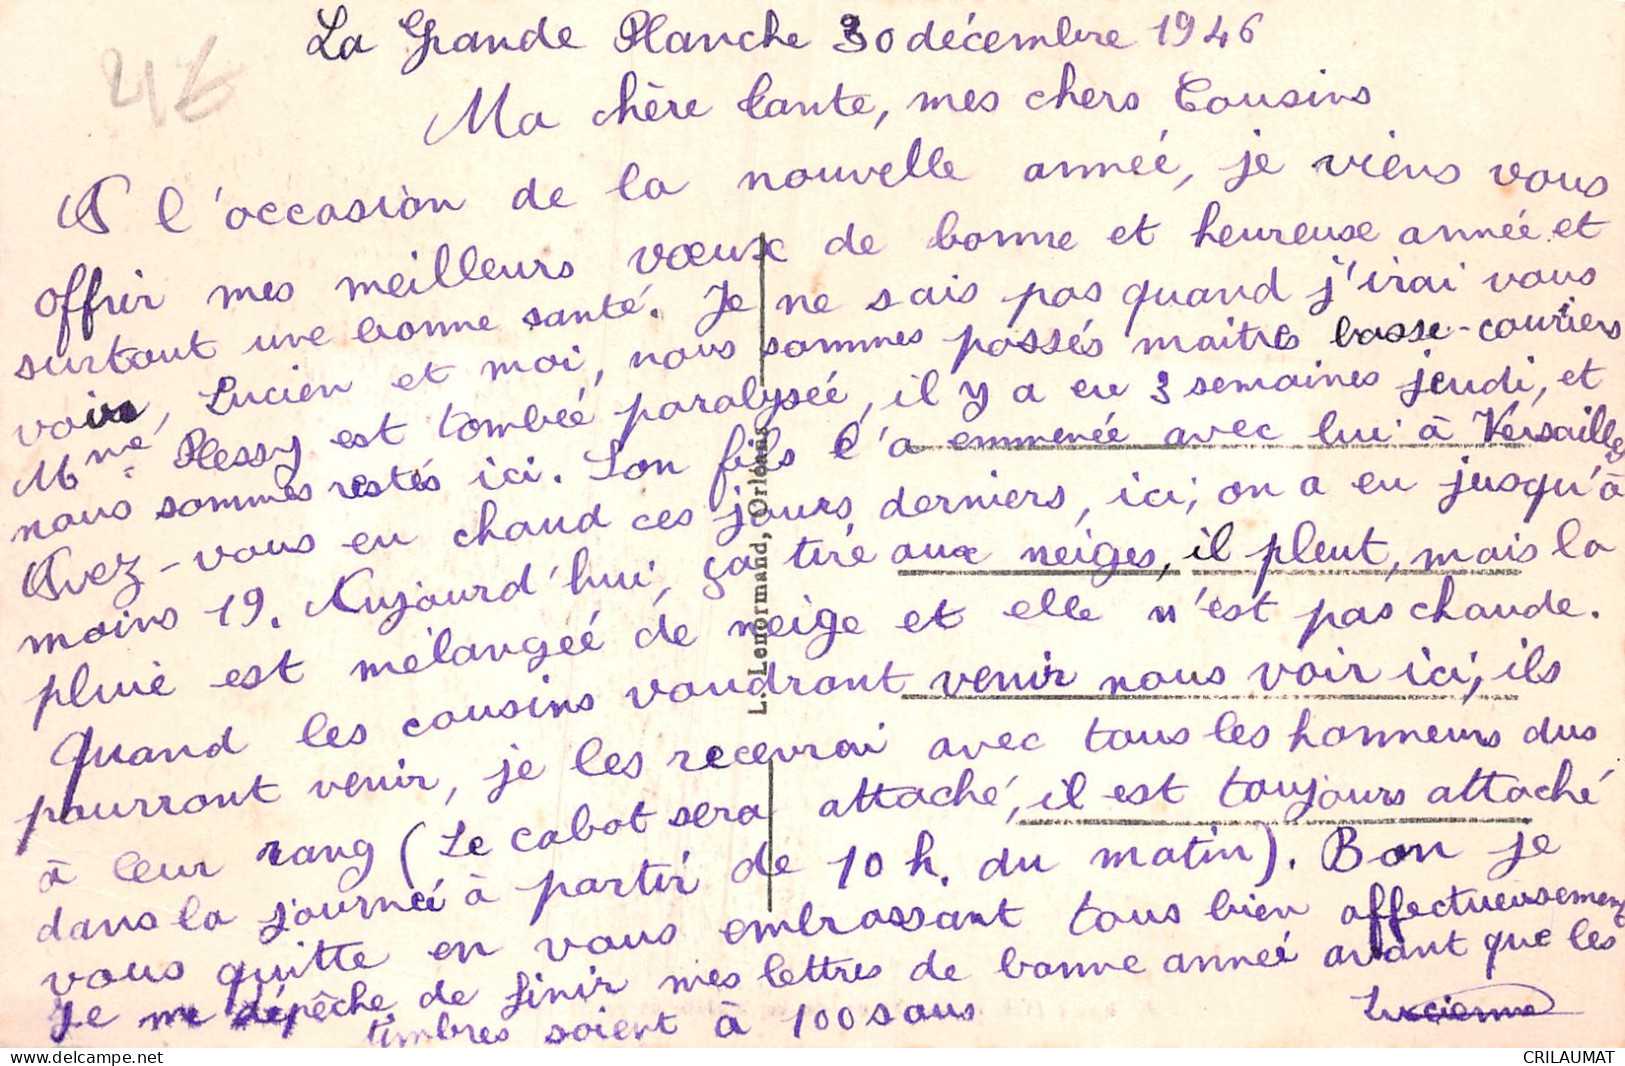 4€
La Grande Planche 30 décembre 1946
Ma chère tante, mes chers Cousins
A l'occasion de la nouvelle année, je viens vous
offrir mes meilleurs vœux de bonne et heureuse année et
surtout une bonne santé. Je ne sais pas quand j'irai vous
voir, Lucien et moi, nous sommes passés maitres basse-couriers
Mme Plessy est tombée paralysée, il y a eu 3 semaines jeudi, et
nous sommes restés ici. Son fils l'a emmenée avec lui à Versailles
Avez-vous eu chaud ces jours derniers, ici, on a eu jusqu'à
moins 19. Aujourd'hui, ça tire aux neiges, il pleut, mais la
pluie est mélangée de neige et elle n'est pas chaude.
Quand les cousins voudront venir nous voir ici, ils
pourront venir, je les recevrai avec tous les honneurs dus
à leur rang (Le cabot sera attaché, il est toujours attaché
dans la journée à partir de 10 h. du matin). Bon je
vous quitte en vous embrassant tous bien affectueusement
Je me dépêche de finir mes lettres de bonne année avant que les
timbres soient à 100 sous
Lucienne
L. Lenormand, Orléans
CRILAUMAT